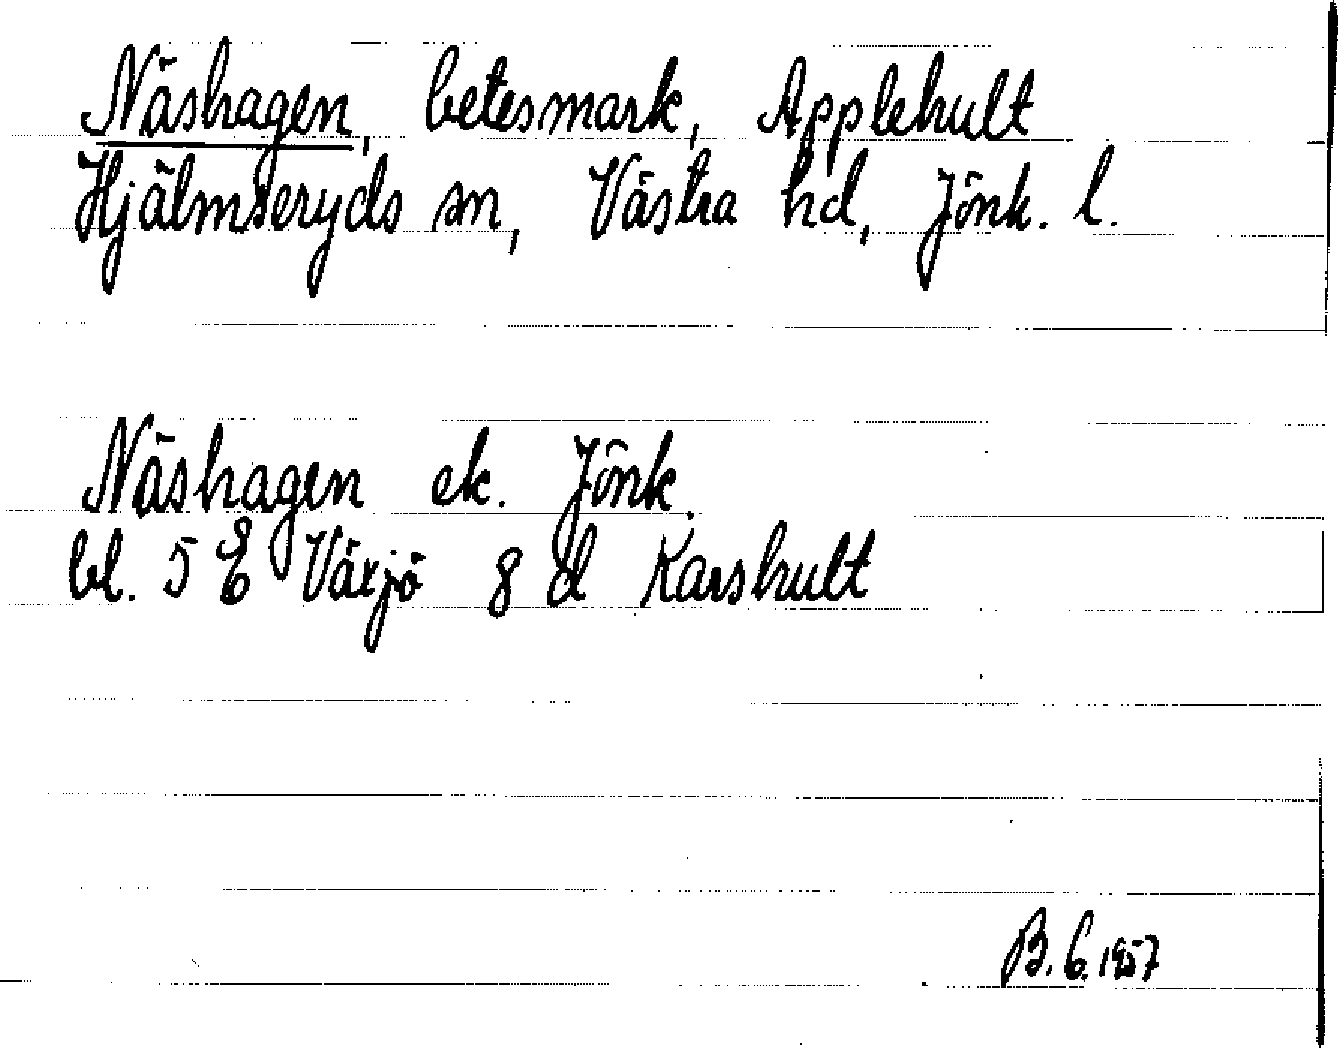 Näshagen, betesmark, Applehult
Hjälmseryds sn, Västra hd, Jönk. l.
Näshagen ek. Jönk.
bl. 5 E Växjö 8 d Karshult
B. 6. 1957